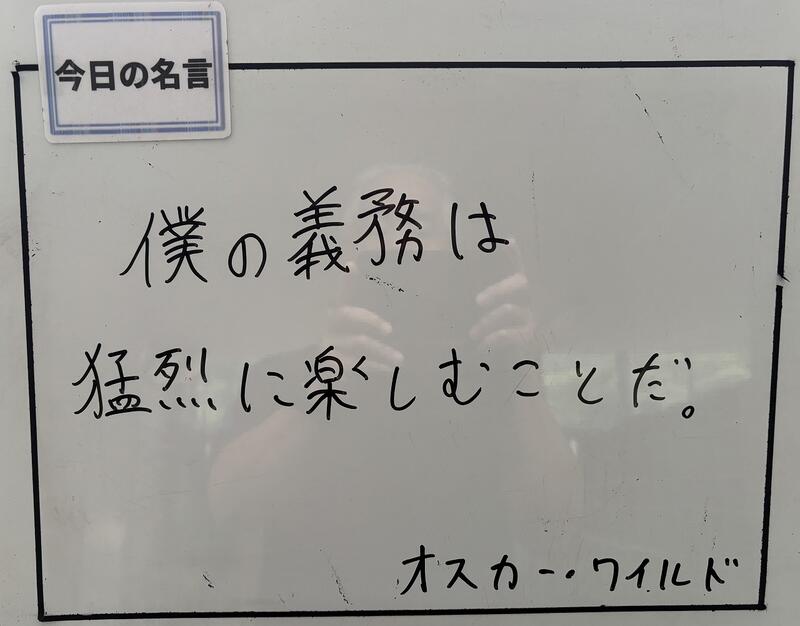 今日の名言
僕の義務は
猛烈に楽しむことだ。
オスカー・ワイルド